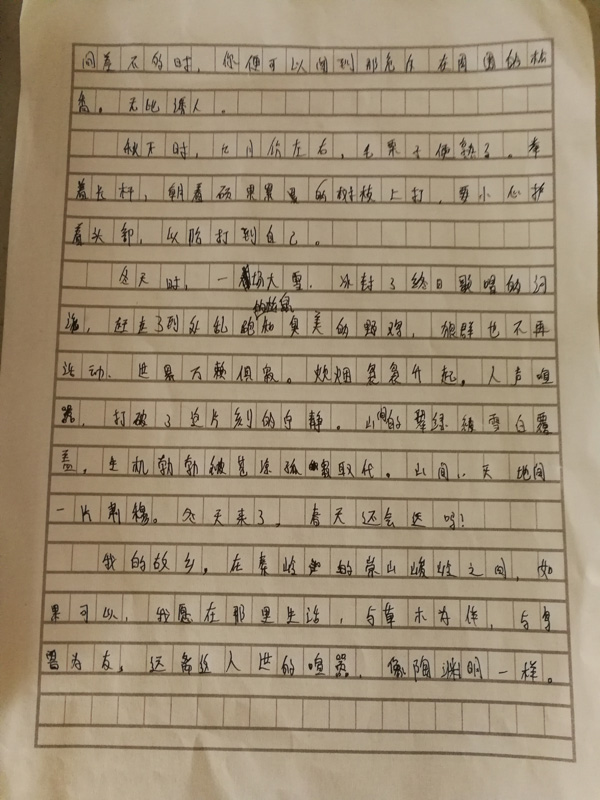 间差不的时，你便可以闻到那飞在周围的松
香。无比诱人。
秋天时，七月份左右，毛栗子便熟了。拿
着长杆，朝着硕果累累的树枝上打，要小心护
着头部，以防打到自己。
冬天时，一场大雪，冰封了终日歌唱的河
流，赶走了到处乱跑的松鼠和臭美的野鸡，狼群也不再
活动，世界万籁俱寂。炊烟袅袅升起，人声喧
嚣，打破了这片刻的宁静。山间的翠绿被雪白覆
盖，生机勃勃被荒凉孤寂取代。山间，天地间
一片肃穆。冬天来了，春天还会远吗？
我的故乡，在秦岭的崇山峻岭之间，如
果可以，我愿在那里生活，与草木为伴，与鸟
雀为友，远离世人的喧嚣，像陶渊明一样。